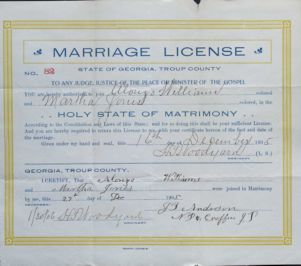 MARRIAGE LICENSE
STATE OF GEORGIA, TROUP COUNTY
No. 82
TO ANY JUDGE, JUSTICE OF THE PEACE OR MINISTER OF THE GOSPEL
YOU are hereby authorized to join Alonzo Williams colored
and Martha Jones colored, in the
HOLY STATE OF MATRIMONY
According to the Constitution and Laws of this State; and for so doing this shall be your sufficient License.
And you are hereby required to return this License to me, with your certificate hereon of the fact and date
of the marriage.
Given under my hand and seal, this 16th day of December 1905
H.T. Woodyard (L. S.)
GEORGIA, TROUP COUNTY.
I CERTIFY, That Alonzo Williams
and Martha Jones were joined in Matrimony
by me, this 27th day of Dec 1905
J.T. Anderson
H.T. Woodyard